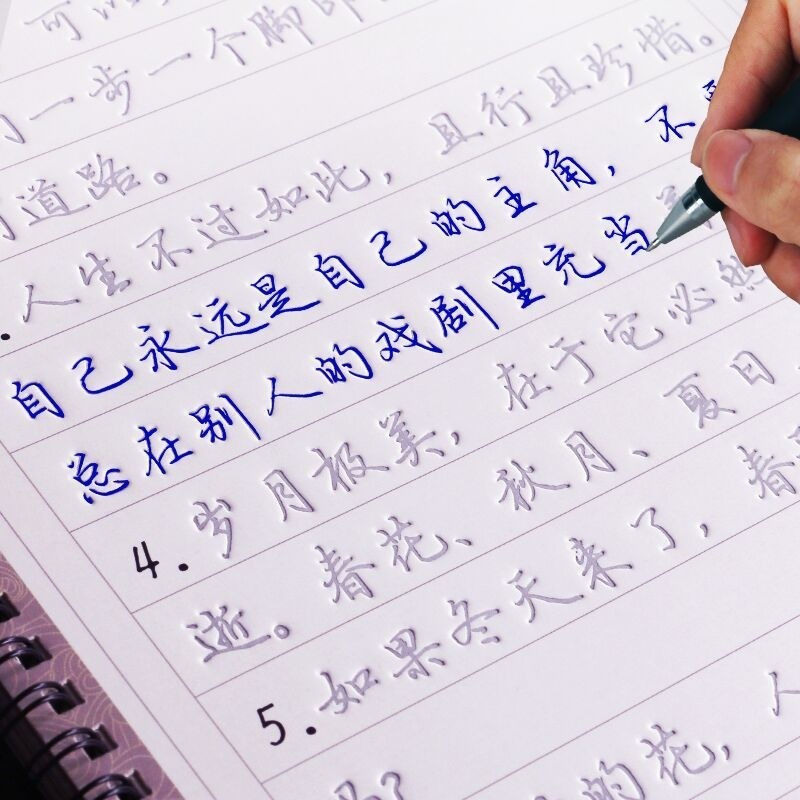 可以
一步一个脚印
道路。
人生不过如此，且行且珍惜。
自己永远是自己的主角，不
总在别人的戏剧里充当
4.岁月极美，在于它必然
逝。春花、秋月、夏日
5.如果冬天来了，春
的花，人
吗？